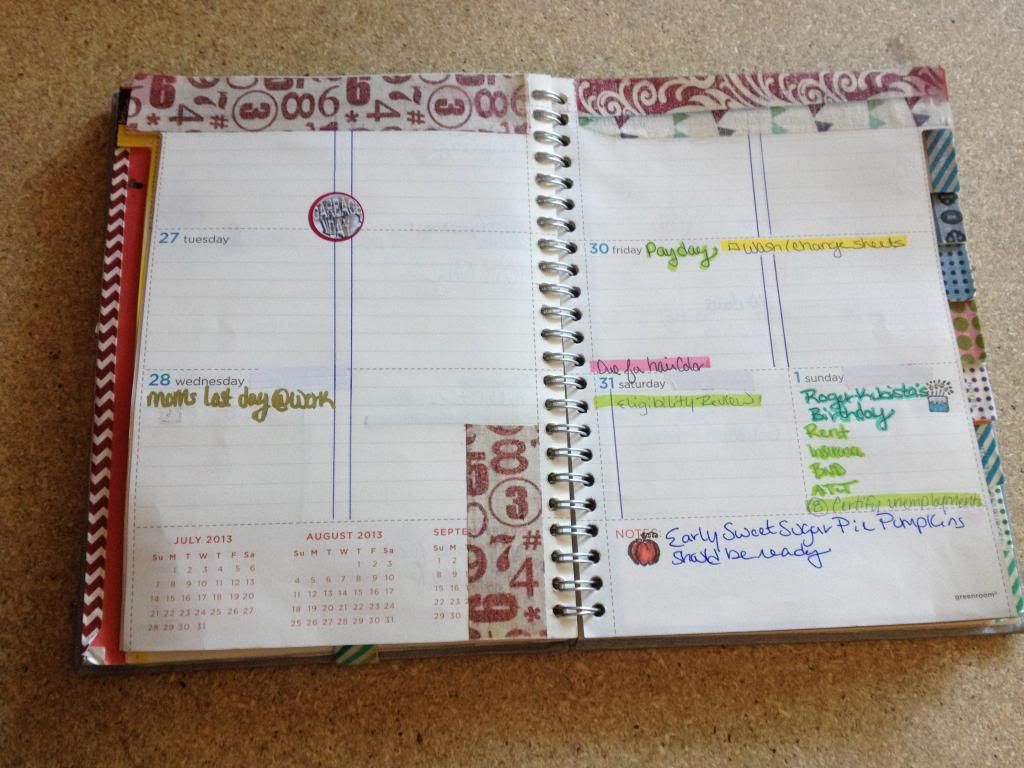 GARBAGE DAY
27 tuesday
28 wednesday
moms last day @ work
JULY 2013
Su M T W T F Sa
1 2 3 4 5 6
7 8 9 10 11 12 13
14 15 16 17 18 19 20
21 22 23 24 25 26 27
28 29 30 31
AUGUST 2013
Su M T W T F Sa
1 2 3
4 5 6 7 8 9 10
11 12 13 14 15 16 17
18 19 20 21 22 23 24
25 26 27 28 29 30 31
SEPTE
Su M
1 2
8 9
15 16
22 23
29 30
30 friday Payday Wash/change sheets
Due for hair color
31 saturday
Eligibility Review
1 sunday
Roger Kubista's
Birthday
Rent
Insurance
ATT
Certify unemployment
NOTES
Early Sweet Sugar Pie Pumpkins
should be ready
greenroom